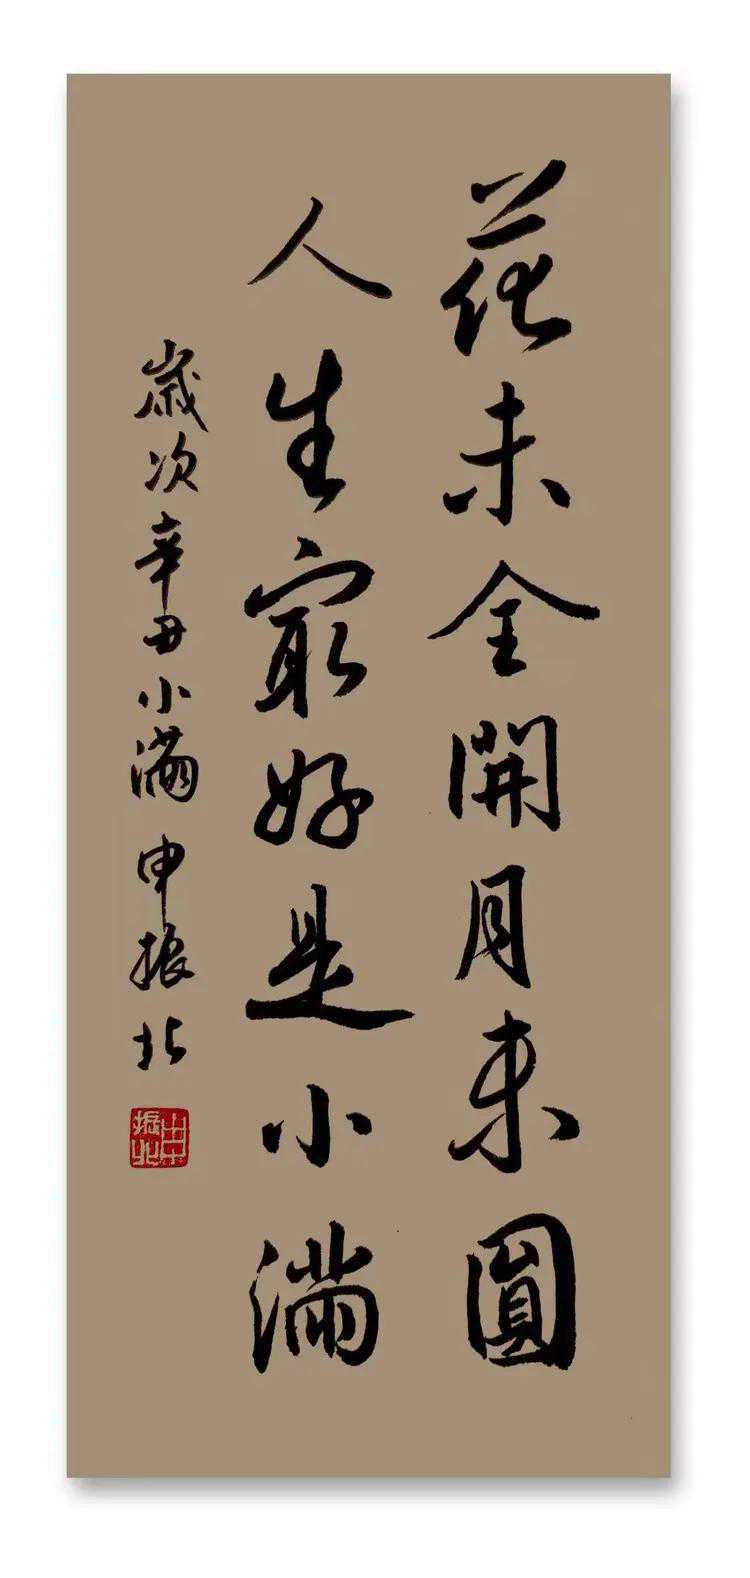 花未全開月未圓
人生㝡好是小滿
歲次辛丑小滿申振北
申振北